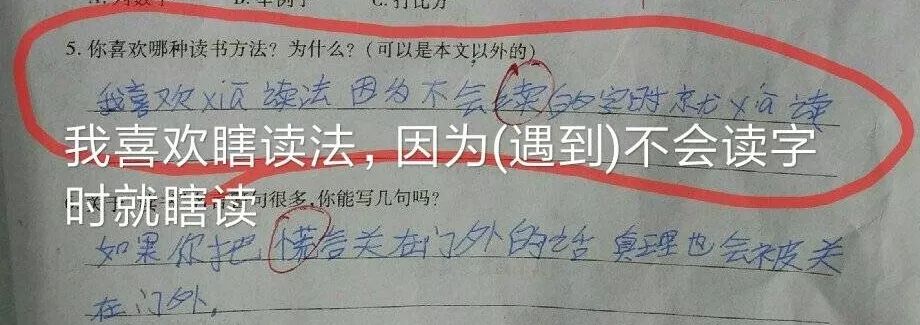 B. 举例子 C. 打比方
5. 你喜欢哪种读书方法？为什么？(可以是本文以外的)
我喜欢xiā读法因为不会读的字时就xiā读
我喜欢瞎读法，因为(遇到)不会读字
时就瞎读
句很多，你能写几句吗？
如果你把谎言关在门外的话真理也会被关
在门外。